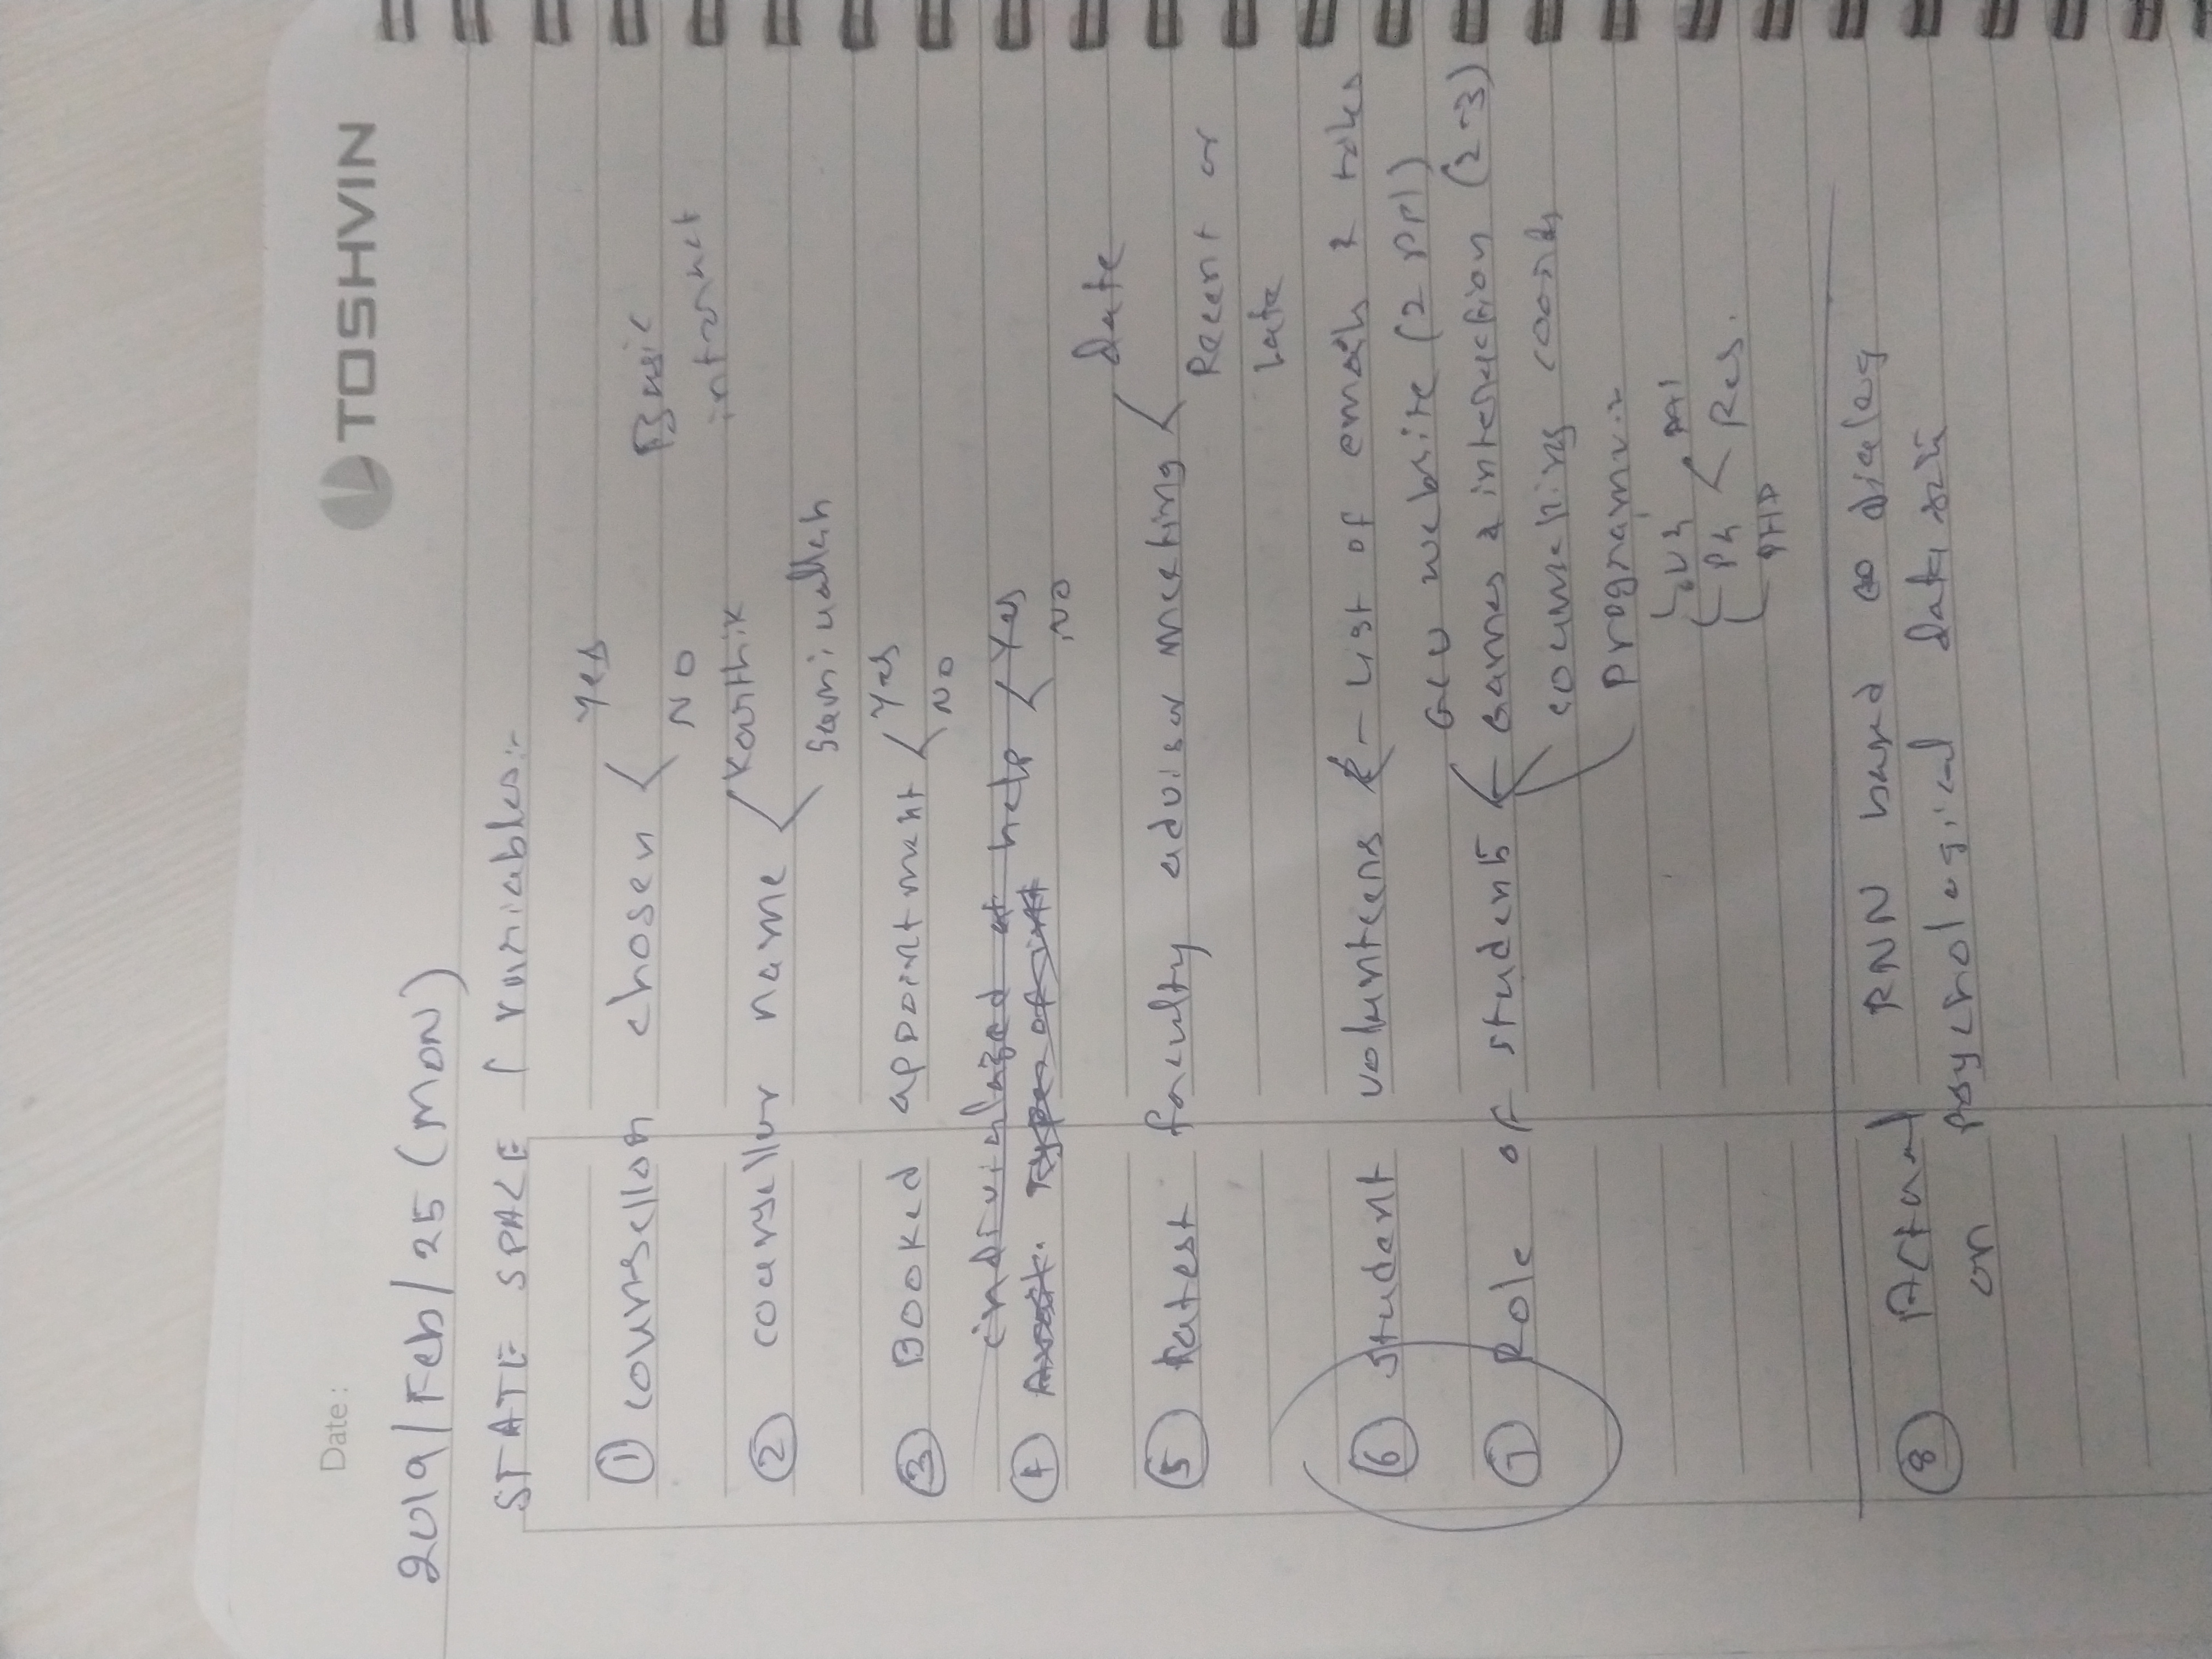 Date :
TOSHVIN
2019/Feb/25 (MON)
STATE SPACE / variables:-
① counsellor chosen < Yes
NO
Basic
internet
② counsellor name < Karthik
Samiuallah
③ Booked appointment < Yes
NO
④ help < Yes
NO
⑤ Latest faculty advisor meeting < date
Recent or
Late
⑥ Student volunteers - List of emails & roles
⑦ Role of students < GCU website (2 ppl)
Games & interaction (2-3)
counselling coords
Program
UG
PG < MI
Res.
PHD
⑧ Actual RNN based dialog
on psychological data set